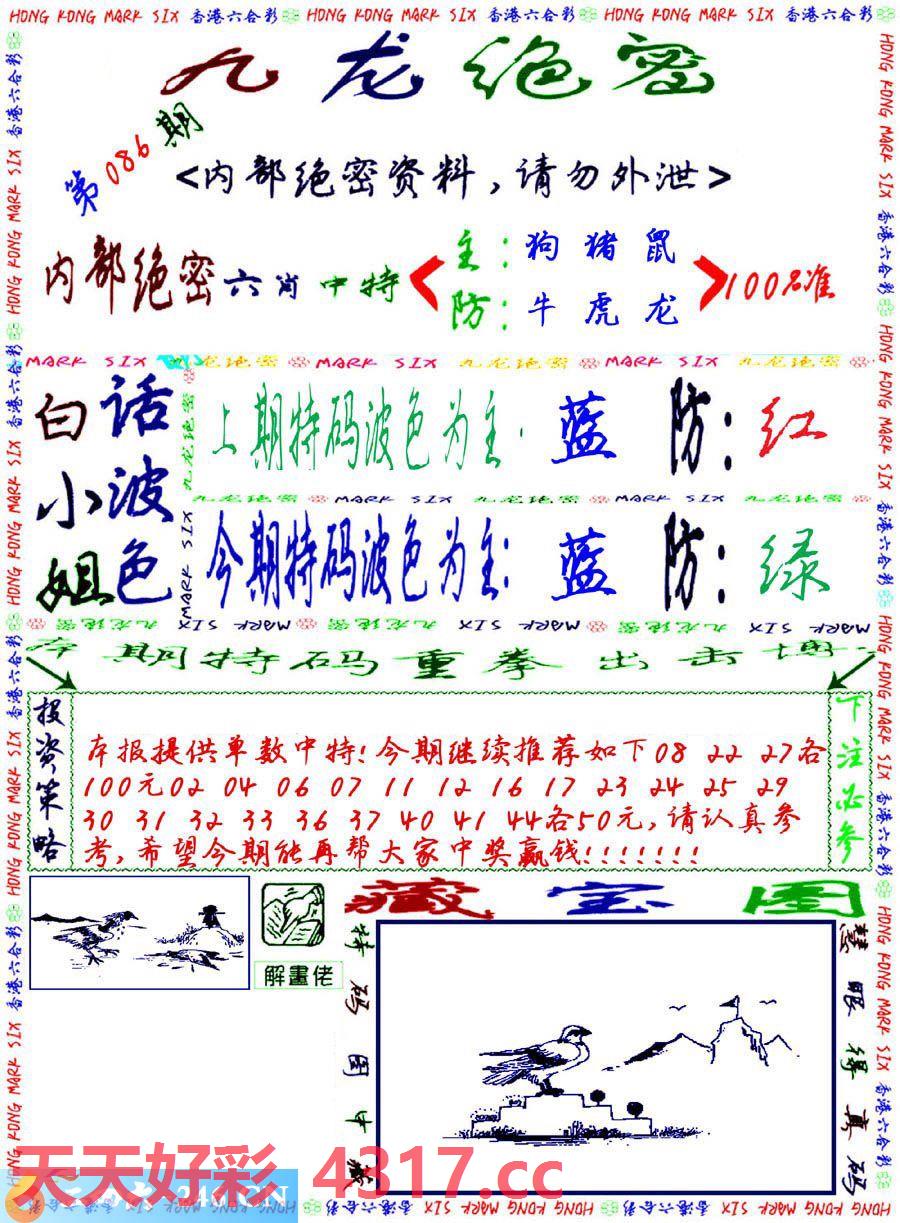 HONG KONG MARK SIX 香港六合彩 HONG KONG MARK SIX 香港六合彩 HONG KONG MARK SIX 香港六合彩
九龙绝密
第086期
<内部绝密资料,请勿外泄>
内部绝密六肖中特
主:狗猪鼠
防:牛虎龙
100%准
MARK SIX 九龙绝密 MARK SIX 九龙绝密 MARK SIX 九龙绝密
白话
小波
姐色
上期特码波色为主. 蓝 防: 红
九龙绝密 MARK SIX 九龙绝密 MARK SIX 九龙绝密
今期特码波色为主: 蓝 防: 绿
MARK SIX 九龙绝密 MARK SIX 九龙绝密 MARK SIX 九龙绝密
本期特码重拳出击
投资策略
本报提供单数中特!今期继续推荐如下08 22 27各
100元02 04 06 07 11 12 16 17 23 24 25 29
30 31 32 33 36 37 40 41 44各50元,请认真参
考,希望今期能再帮大家中奖赢钱!!!!!!!
下注必参
解畫佬
藏宝图
特码图中藏
慧眼得真码
天天好彩 4317.cc
246.CN